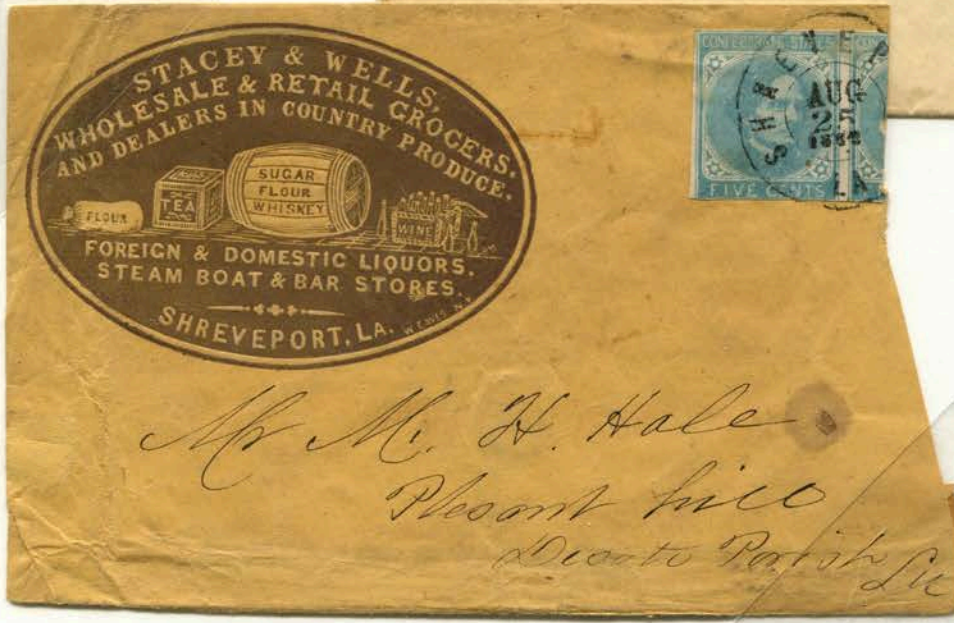 STACEY & WELLS,
WHOLESALE & RETAIL GROCERS,
AND DEALERS IN COUNTRY PRODUCE.
FLOUR
TEA
SUGAR
FLOUR
WHISKEY
WINE
FOREIGN & DOMESTIC LIQUORS.
STEAM BOAT & BAR STORES.
SHREVEPORT, LA.
FIVE CENTS
SHREVEP
AUG
25
LA
Mr M. H. Hale
Plesant hill
Desoto Parish
La